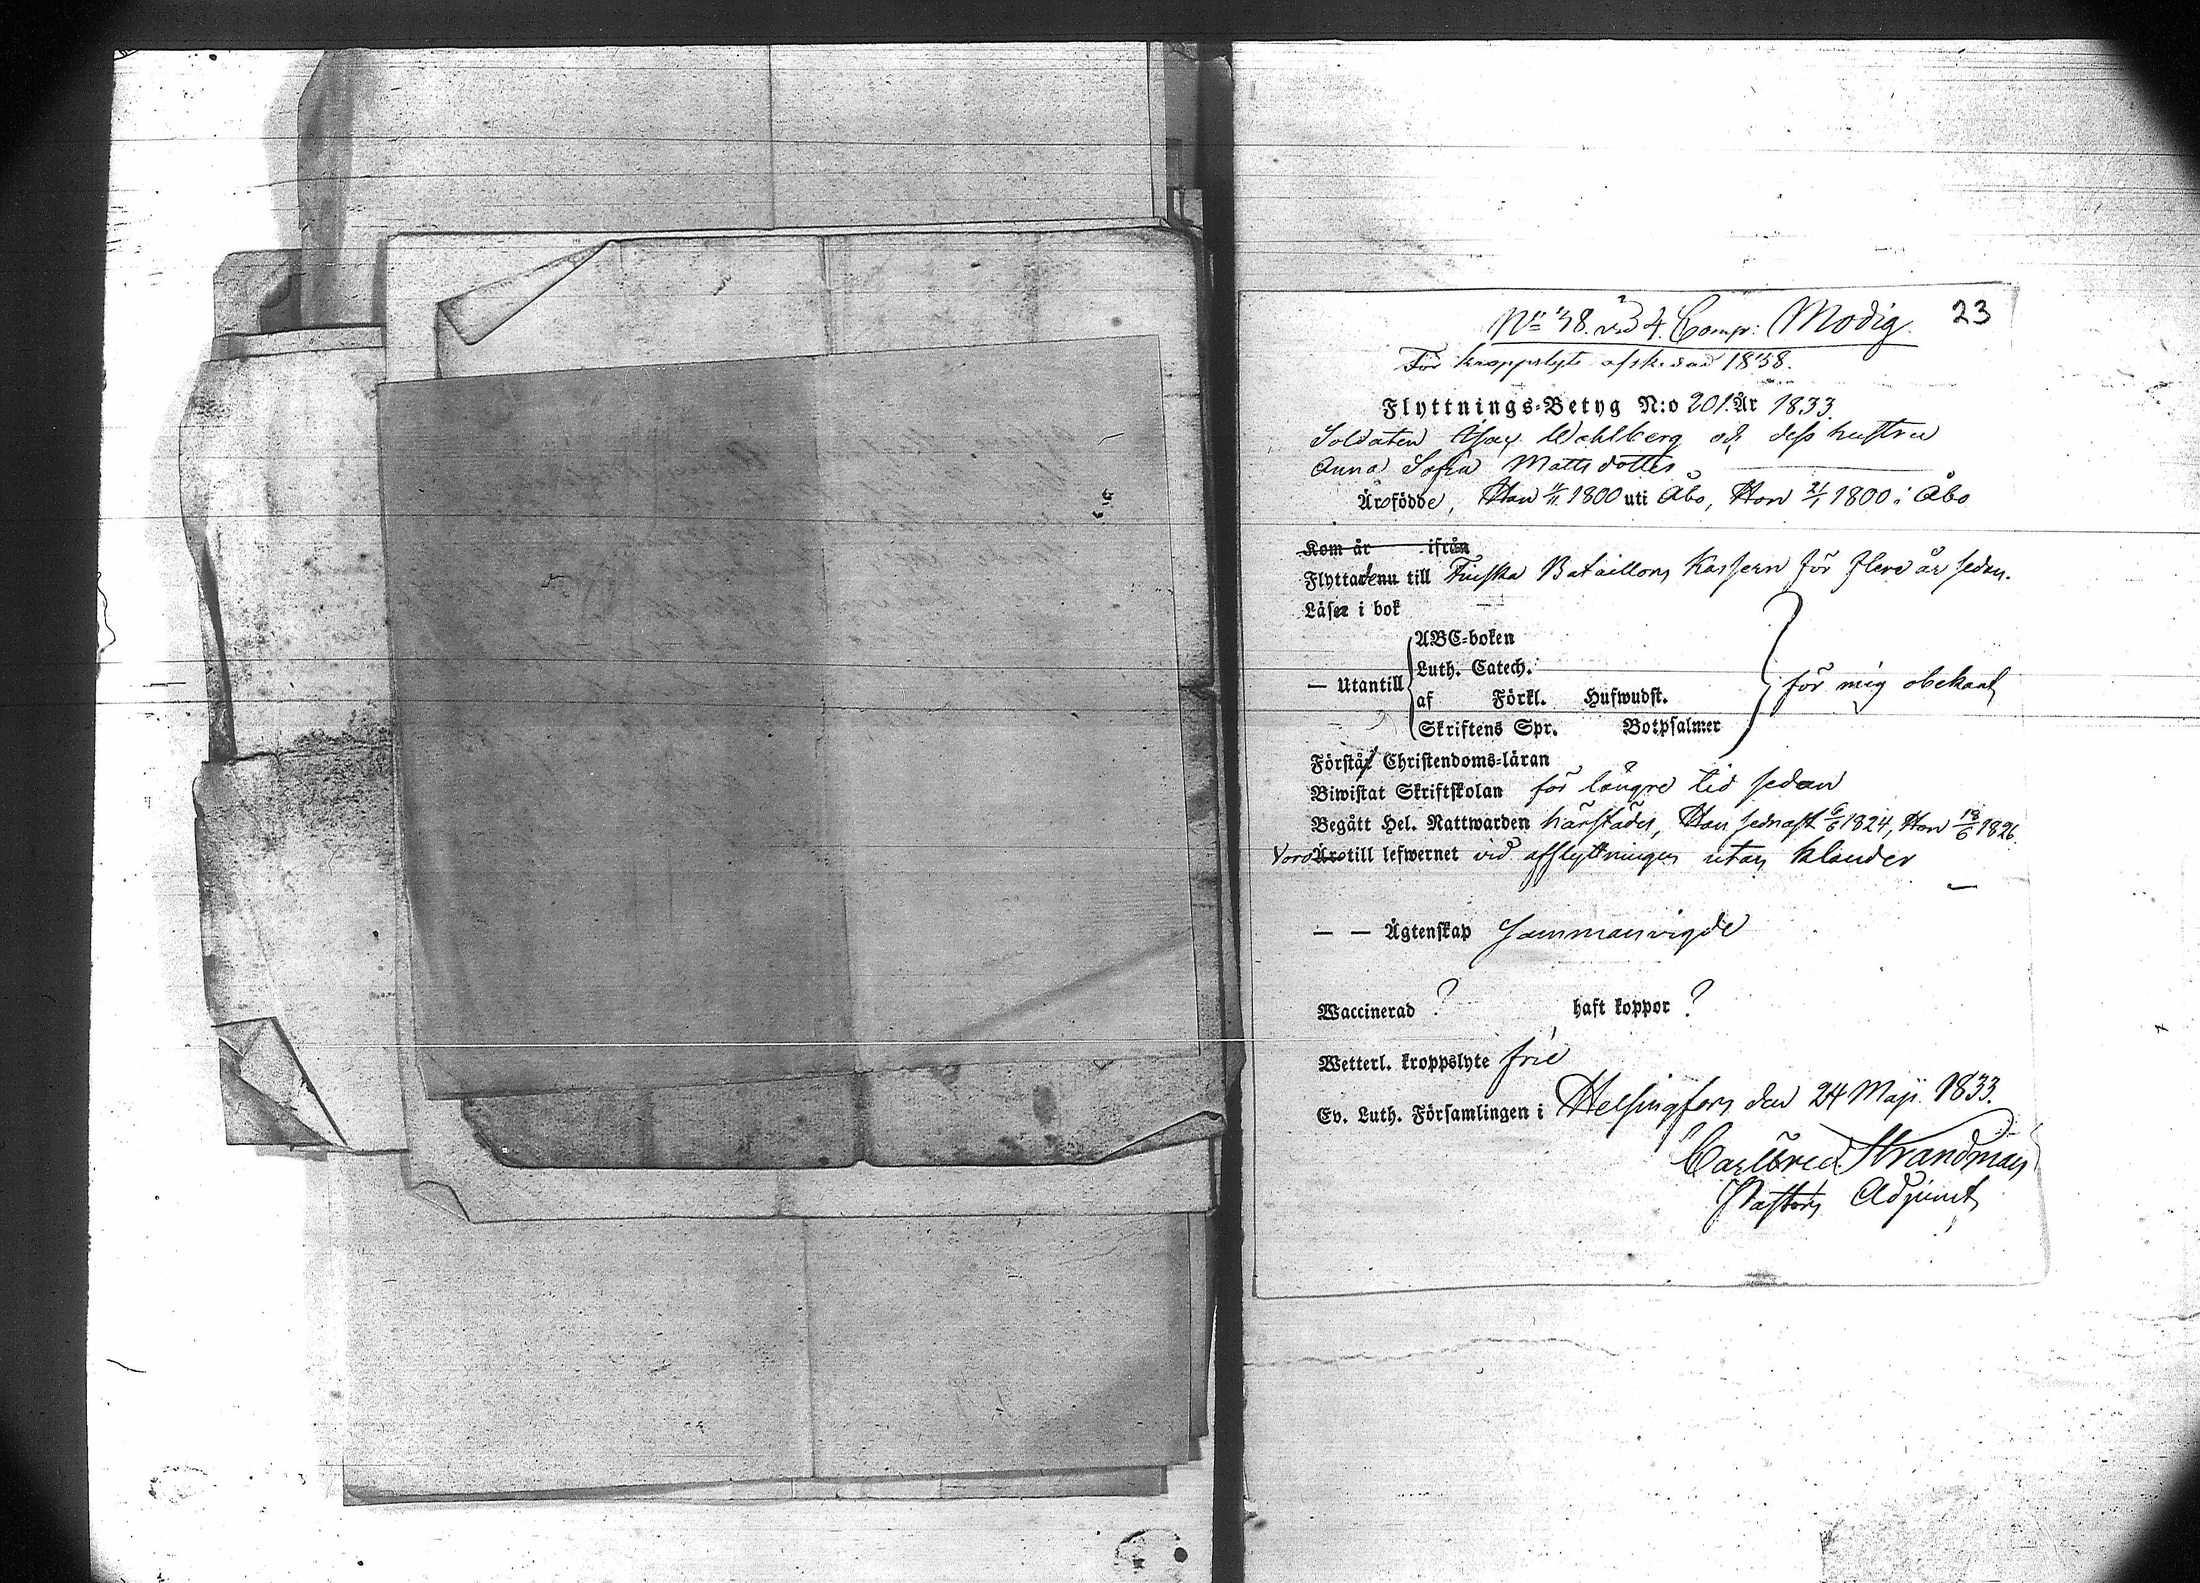 23
No 38. vid 4. Comp: Modig.
För kroppslyte afskedad 1838.
Flyttnings-Betyg N:o 201. År 1833.
Soldaten Isac Wahlberg och dess hustru
Anna Sofia Mattsdotter
Äro födde, Han 1800 uti Åbo, Hon 21/1 1800 i Åbo
Kom år ifrån
Flyttade till Finska Bataillons Kassern för flere år sedan.
Läser i bok
ABC-boken
Luth. Catech.
— Utantill
af Förkl. Hufwudst.
för mig obekant
Skriftens Spr. Botpsalmer
Förstå Christendoms-läran
Biwistat Skriftskolan för längre tid sedan
Begått Hel. Nattwarden härstädes, Han sednast 6/6 1824, Hon 18/6 1826
Voro Äro till lefwernet vid afflyttningen utan klander
— — Ägtenskap sammanvigde
Waccinerad ? haft koppor ?
Wetterl. kroppslyte frie
Ev. Luth. Församlingen i Helsingfors den 24 Maji 1833.
Strandman
Pastors Adjunct